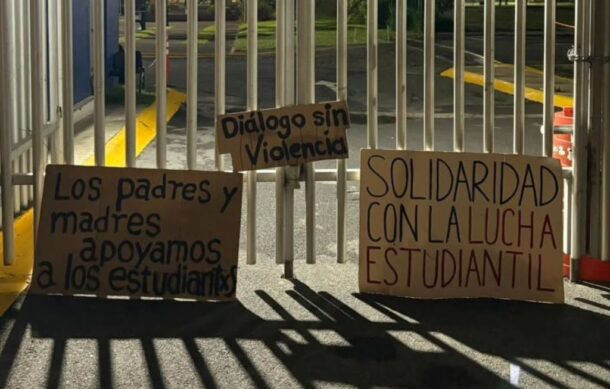 Diálogo sin
Violencia
Los padres y
madres
apoyamos
a los estudiantxs
SOLIDARIDAD
CON LA LUCHA
ESTUDIANTIL